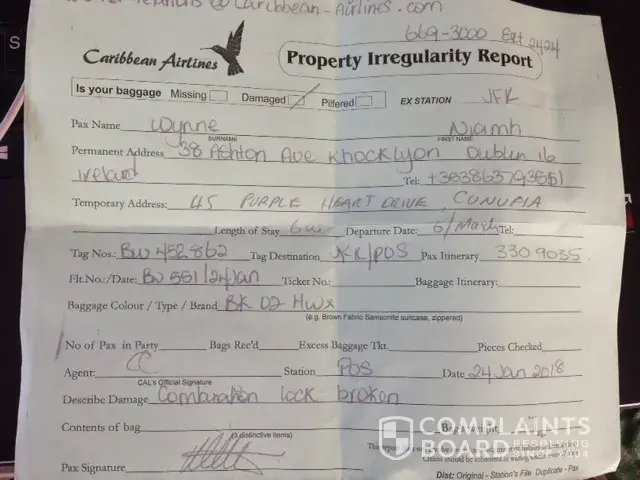 @ Caribbean-Airlines.com
669-3000 Ext 2424
Caribbean Airlines
Property Irregularity Report
Is your baggage Missing Damaged Pilfered EX STATION JFK
Pax Name Wynne Niamh
SURNAME FIRST NAME
Permanent Address 38 Ashton Ave Knocklyon Dublin 16
Ireland Tel:
Temporary Address: 45 PURPLE HEART DRIVE, CUNUPIA
Length of Stay 6w Departure Date: 5/March Tel:
Tag Nos.: BW 452862 Tag Destination JFK/POS Pax Itinerary 3309035
Flt.No./Date: BW 551/24Jan Ticket No.: Baggage Itinerary:
Baggage Colour / Type / Brand BK 02 HWX
(e.g. Brown Fabric Samsonite suitcase, zippered)
No of Pax in Party Bags Rec'd Excess Baggage Tkt. Pieces Checked
Agent: CC Station POS Date 24 Jan 2018
CAL's Official Signature
Describe Damage Combination lock broken
Contents of bag Bag weight
(3 distinctive items)
This report
Pax Signature
Claims should be submitted in writing
Dist: Original - Station's File Duplicate - Pax
COMPLAINTS
BOARD RESOLVING
SINCE 2004